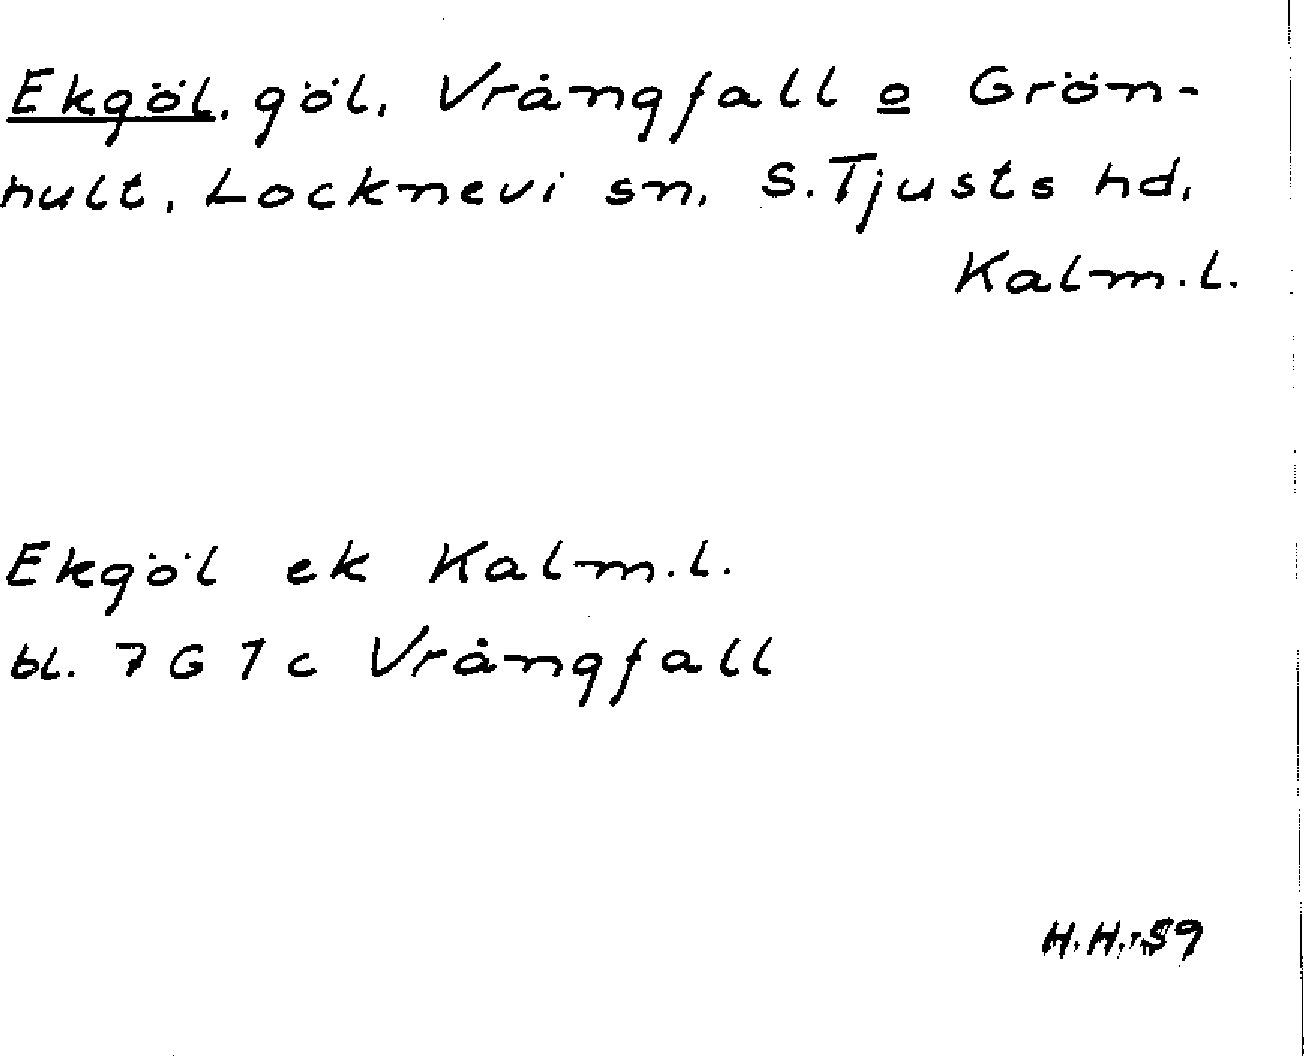 Ekgöl, göl, Vrångfall o Grön-
hult, Locknevi sn, S. Tjusts hd,
Kalm. l.
Ekgöl ek Kalm. l.
bl. 7 G 1 c Vrångfall
H. H. 59